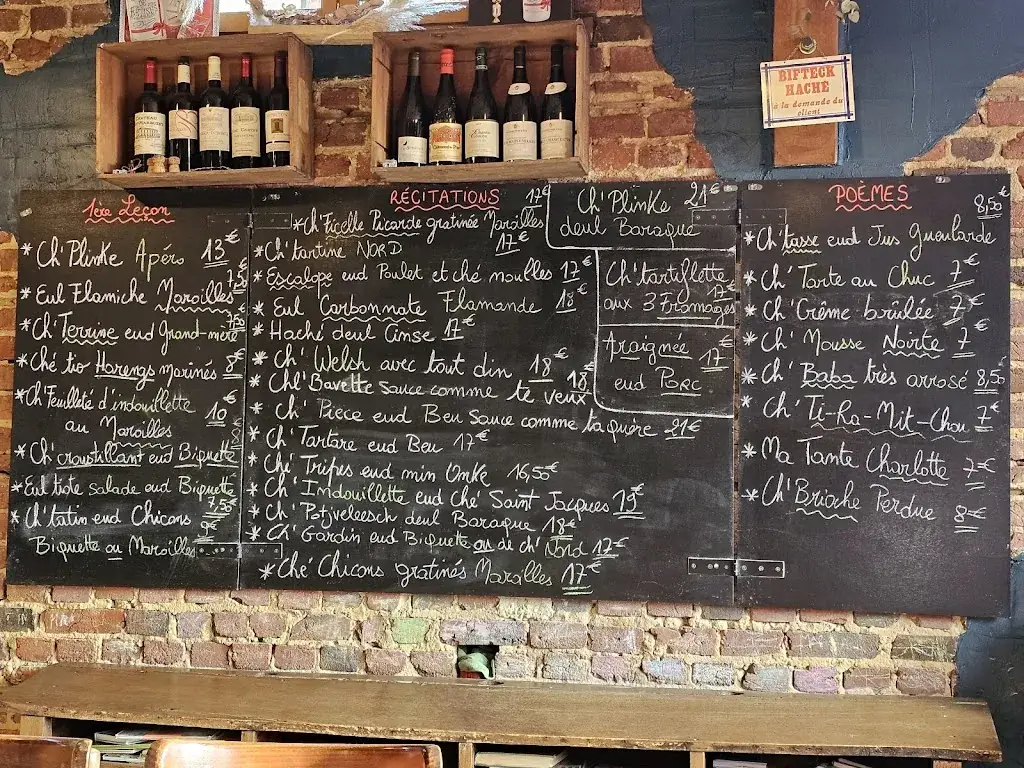 BIFTECK
HACHÉ
à la demande du
client
1ère Leçon
*Ch'Plinke Apéro 13€
*Eul Flamiche Maroilles 7,50€
*Ch'Terrine eud Grand-mère
*Ché tio Harengs marinés 8€
*Ch'Feuilleté d'indouillette 10€
au Maroilles
*Ch'croustillant eud Biquette
*Eul tiote salade eud Biquette 7,50€
*Ch'tatin eud Chicons 9€
Biquette ou Maroilles
RÉCITATIONS
*Ch'Ficelle Picarde gratinée Maroilles 17€
*Ch'tartine NORD 17€
*Escalope eud Poulet et ché moulles 17€
*Eul Carbonnate Flamande 18€
*Haché deul Cinse 17€
*Ch' Welsh avec tout din 18€
*Ché'Bavette sauce comme te veux 18€
*Ch' Pièce eud Beu sauce comme ta quère 21€
*Ch'Tartare eud Beu 17€
*Ché Tripes eud min Onke 16,50€
*Ch'Indouillette eud ché Saint Jacques 19€
*Ch'Potjveleesch deul Baraque 18€
*Ch'Gardin eud Biquette ou de ch'Nord 17€
*Ché'Chicons gratinés Maroilles 17€
Ch'Plinke 21€
deul Baraque
Ch'tartiflette
aux 3 Fromages 17€
Araignée 17€
eud Porc
POÈMES
*Ch'tasse eud Jus Gueularde 8,50€
*Ch'Tarte au Chuc 7€
*Ch'Crème brûlée 7€
*Ch' Mousse Noirte 7€
*Ch' Baba très arrosé 8,50€
*Ch' Ti-Ra-Mit-Chou 7€
*Ma Tante Charlotte 7€
*Ch'Brioche Perdue 8€